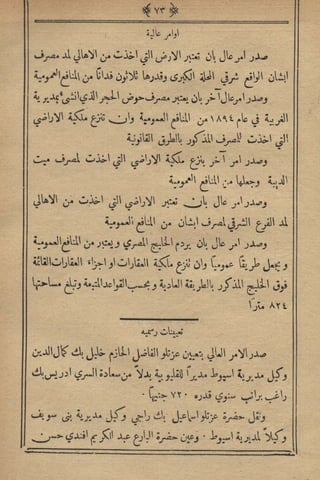 ﴿ ٧٣ ﴾
اوامر عالية
صدر امر عال بان تعتبر الارض التي اخذت من الاهالي لمد مصرف
ابشان الواقع شرقي المحلة الكبرى وقدرها ثلاثون فدانًا من المنافع العمومية
وصدر امر عال آخر بان يعتبر مصرف حوض الحجر الذي انشئ بمديرية
الغربية في عام ١٨٩٤ من المنافع العمومية وان تنزع ملكية الاراضي
التي اخذت للمصرف المذكور بالطرق القانونية
وصدر امر آخر بنزع ملكية الاراضي التي اخذت لمصرف ميت
الديبة وجعلها من المنافع العمومية
وصدر امر عال بان تعتبر الاراضي التي اخذت من الاهالي
لمد الفرع الشرقي لمصرف ابشان من المنافع العمومية
وصدر امر عال بان يردم الخليج المصري ويعتبر من المنافع العمومية
ويجعل طريقًا عموميًا وان تنزع ملكية العقارات او اجزاء العقارات القائمة
فوق الخليج المذكور بالطريقة العادية وبحسب القواعد المتبعة وتبلغ مساحتها
٨٢٤ مترًا
تعيينات رسميه
صدر الامر العالي بتعيين عزتلو الفاضل الحازم خليل بك كمال الدين
وكيل مديرية اسيوط مديرًا للقليوبية بدلاً من سعادة السري ادريس بك
راغب براتب سنوي قدره ٧٢٠ جنيهًا ٠
ونقل حضرة عزتلو اسماعيل بك راجي وكيل مديرية بنى سويف
وكيلاً لمديرية اسيوط ٠ وعين حضرة البارع عبد الكريم افندي حسن